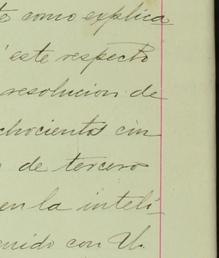 como explica
este respecto
resolucion de
chocientos cin
de tercero
en la inteli-
nido con U.